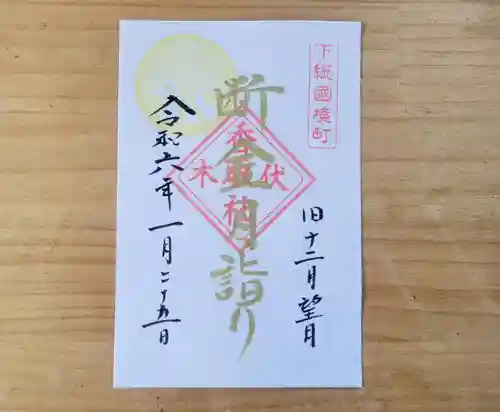 下総國境町
旧十二月望月
断金月詣り
伏木
香取神社
令和六年一月二十五日